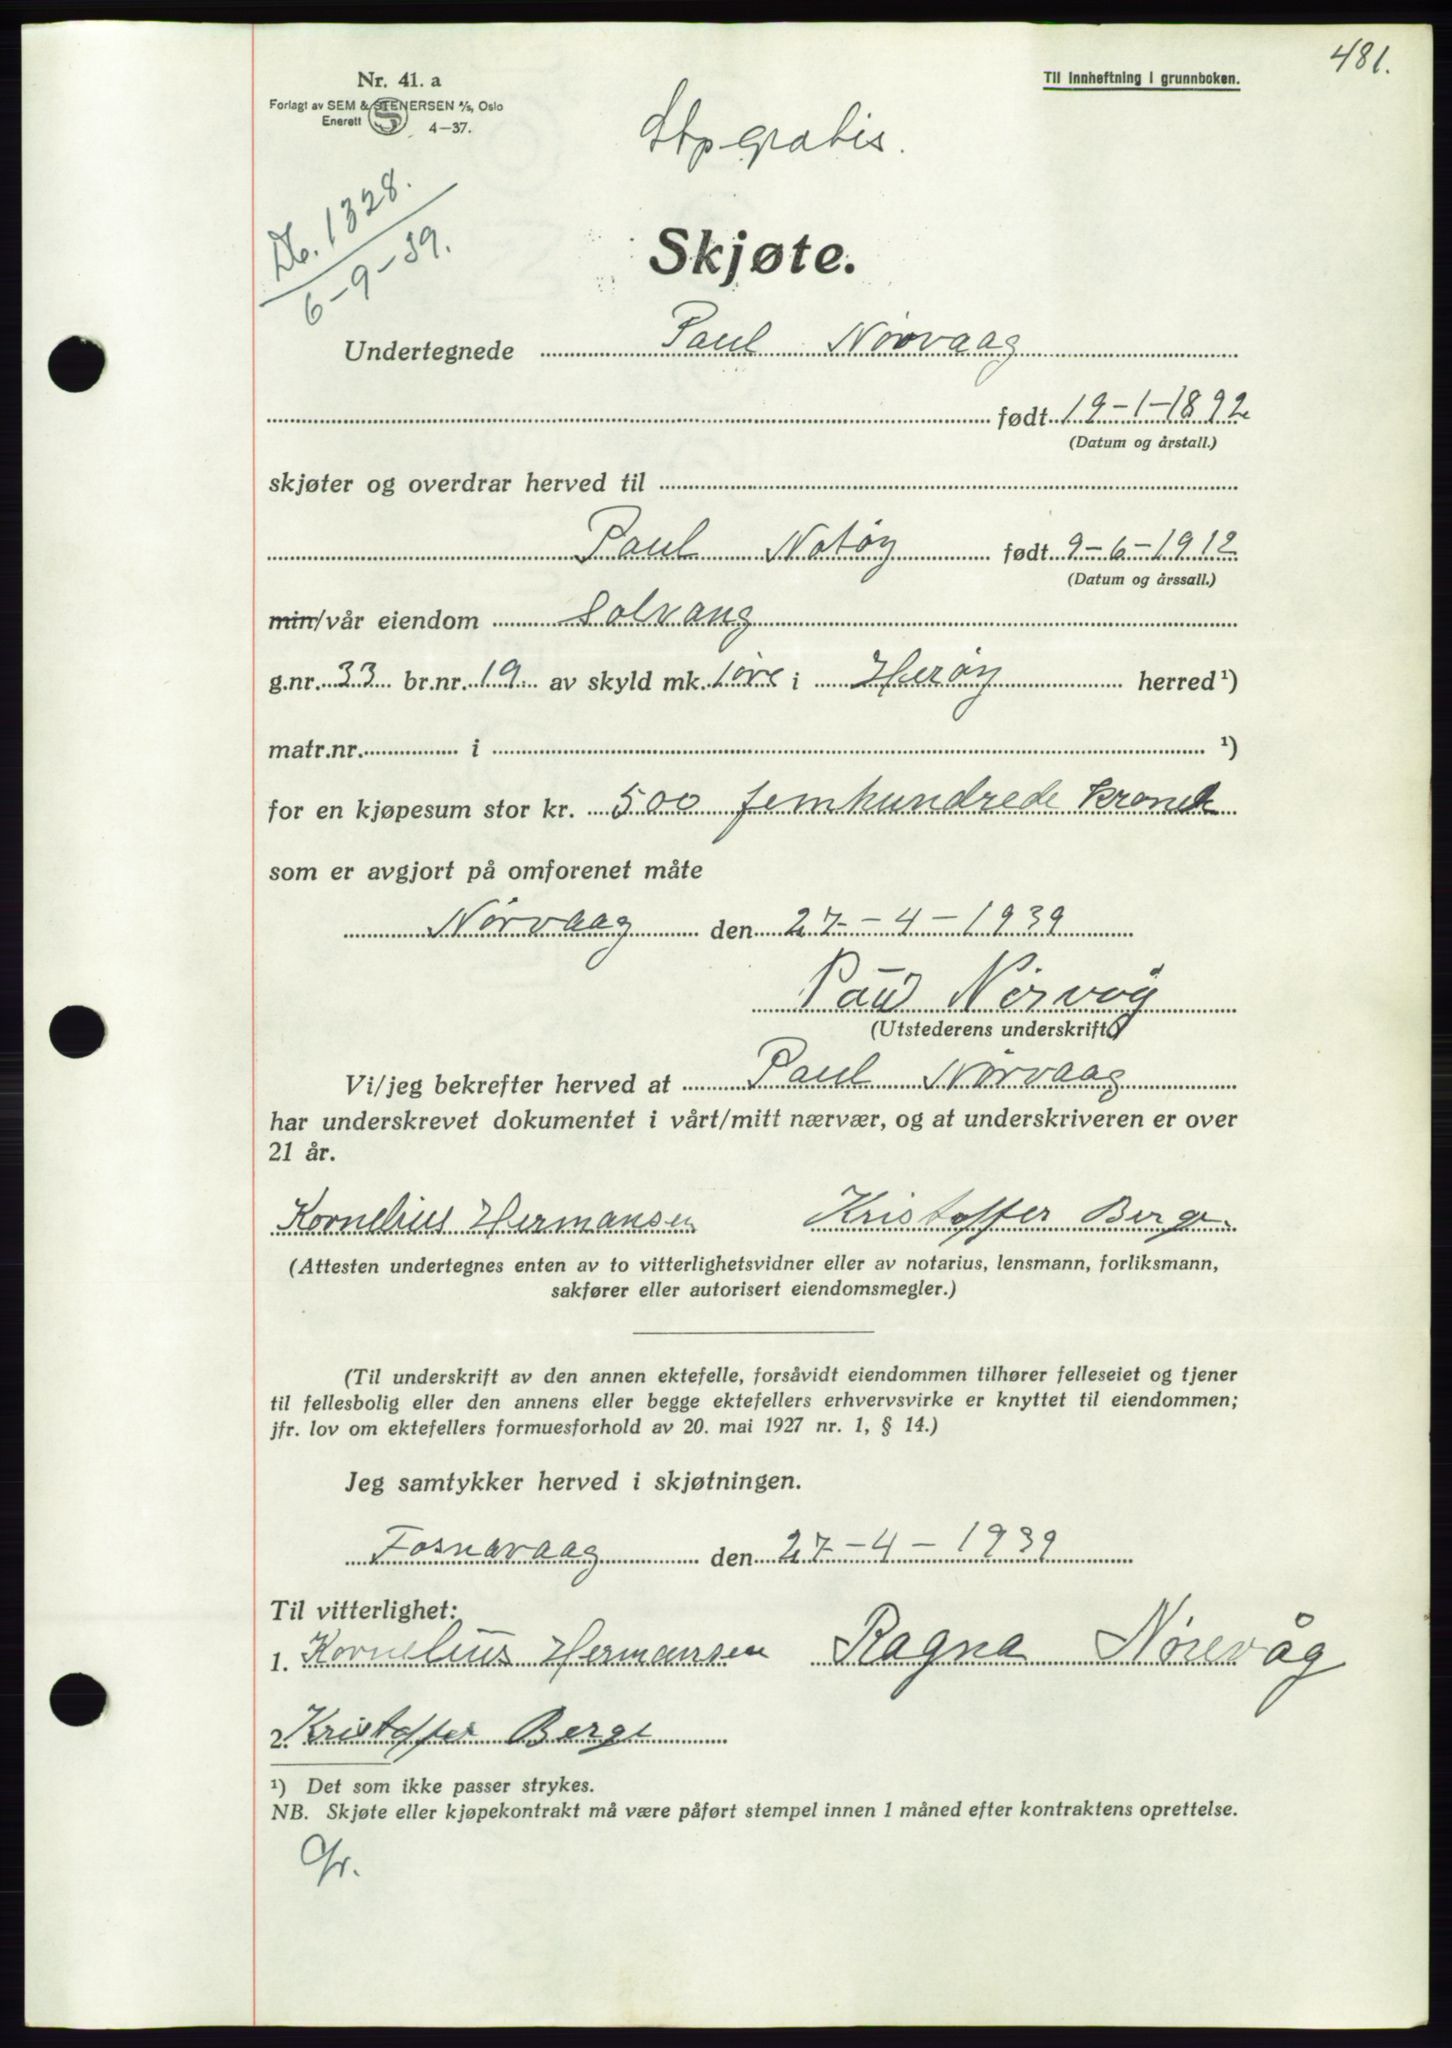 481.
Nr. 41. a
Til innheftning i grunnboken.
Forlagt av SEM & STENERSEN A/S, Oslo
Enerett 4—37.
Stp gratis.
Db. 1328.
6-9-39.
Skjøte.
Undertegnede Paul Nørvaag
født 19-1-1892
(Datum og årstall.)
skjøter og overdrar herved til
Paul Notøy født 9-6-1912
(Datum og årssall.)
min/vår eiendom Solvang
g.nr. 33 br.nr. 19 av skyld mk. 1 øre i Herøy herred ¹)
matr.nr. i ¹)
for en kjøpesum stor kr. 500 femhundrede kroner
som er avgjort på omforenet måte
Nørvaag den 27-4-1939
Paul Nørvåg
(Utstederens underskrift)
Vi/jeg bekrefter herved at Paul Nørvaag
har underskrevet dokumentet i vårt/mitt nærvær, og at underskriveren er over
21 år.
Kornelius Hermansen Kristoffer Berge.
(Attesten undertegnes enten av to vitterlighetsvidner eller av notarius, lensmann, forliksmann,
sakfører eller autorisert eiendomsmegler.)
(Til underskrift av den annen ektefelle, forsåvidt eiendommen tilhører felleseiet og tjener
til fellesbolig eller den annens eller begge ektefellers erhvervsvirke er knyttet til eiendommen;
jfr. lov om ektefellers formuesforhold av 20. mai 1927 nr. 1, § 14.)
Jeg samtykker herved i skjøtningen.
Fosnavaag den 27-4-1939
Til vitterlighet:
1. Kornelius Hermansen Ragna Nørevåg
2. Kristoffer Berge
¹) Det som ikke passer strykes.
NB. Skjøte eller kjøpekontrakt må være påført stempel innen 1 måned efter kontraktens oprettelse.